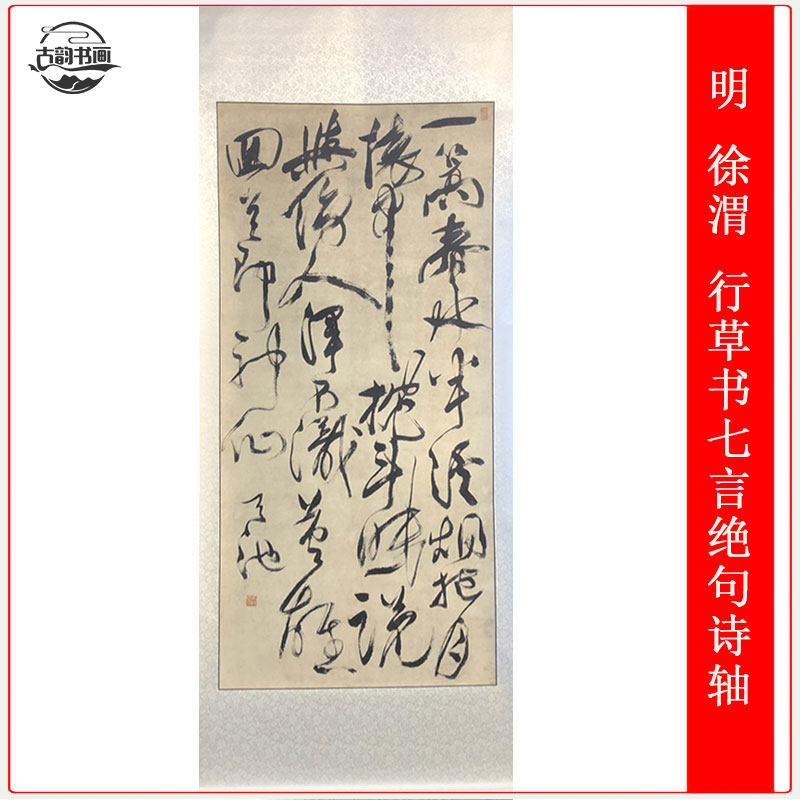 古韵书画
明 徐渭 行草书七言绝句诗轴
一篙春水半溪烟抱月
懷中枕斗眠說
與傍人渾不識英雄
回首即神仙 天池